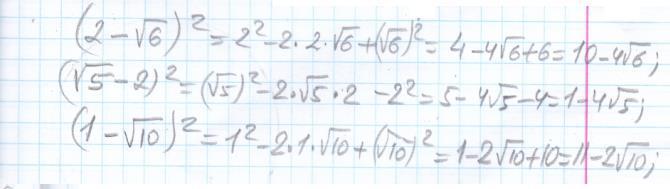 (2-√6)² = 2² - 2·2·√6 + (√6)² = 4 - 4√6 + 6 = 10 - 4√6;
(√5-2)² = (√5)² - 2·√5·2 - 2² = 5 - 4√5 - 4 = 1 - 4√5;
(1-√10)² = 1² - 2·1·√10 + (√10)² = 1 - 2√10 + 10 = 11 - 2√10;